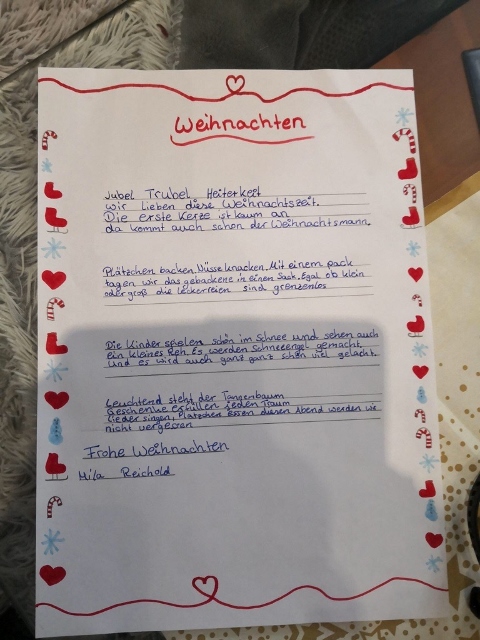 Weihnachten
Jubel Trubel Heiterkeit
wir lieben diese Weihnachtszeit.
Die erste Kerze ist kaum an
da kommt auch schon der Weihnachtsmann.
Plätzchen backen, Nüsse knacken. Mit einem pack
tagen wir das gebackene in einen Sack. Egal ob klein
oder groß die leckereien sind grenzenlos
Die Kinder spielen schön im Schnee und sehen auch
ein kleines Reh. Es werden Schneeengel gemacht
und es wird auch ganz ganz schön viel gelacht.
Leuchtend steht der Tangenbaum
Geschenke erfüllen jeden Traum
Lieder singen, Plätzchen essen diesen Abend werden wir
nicht vergessen
Frohe Weihnachten
Mila Reichold